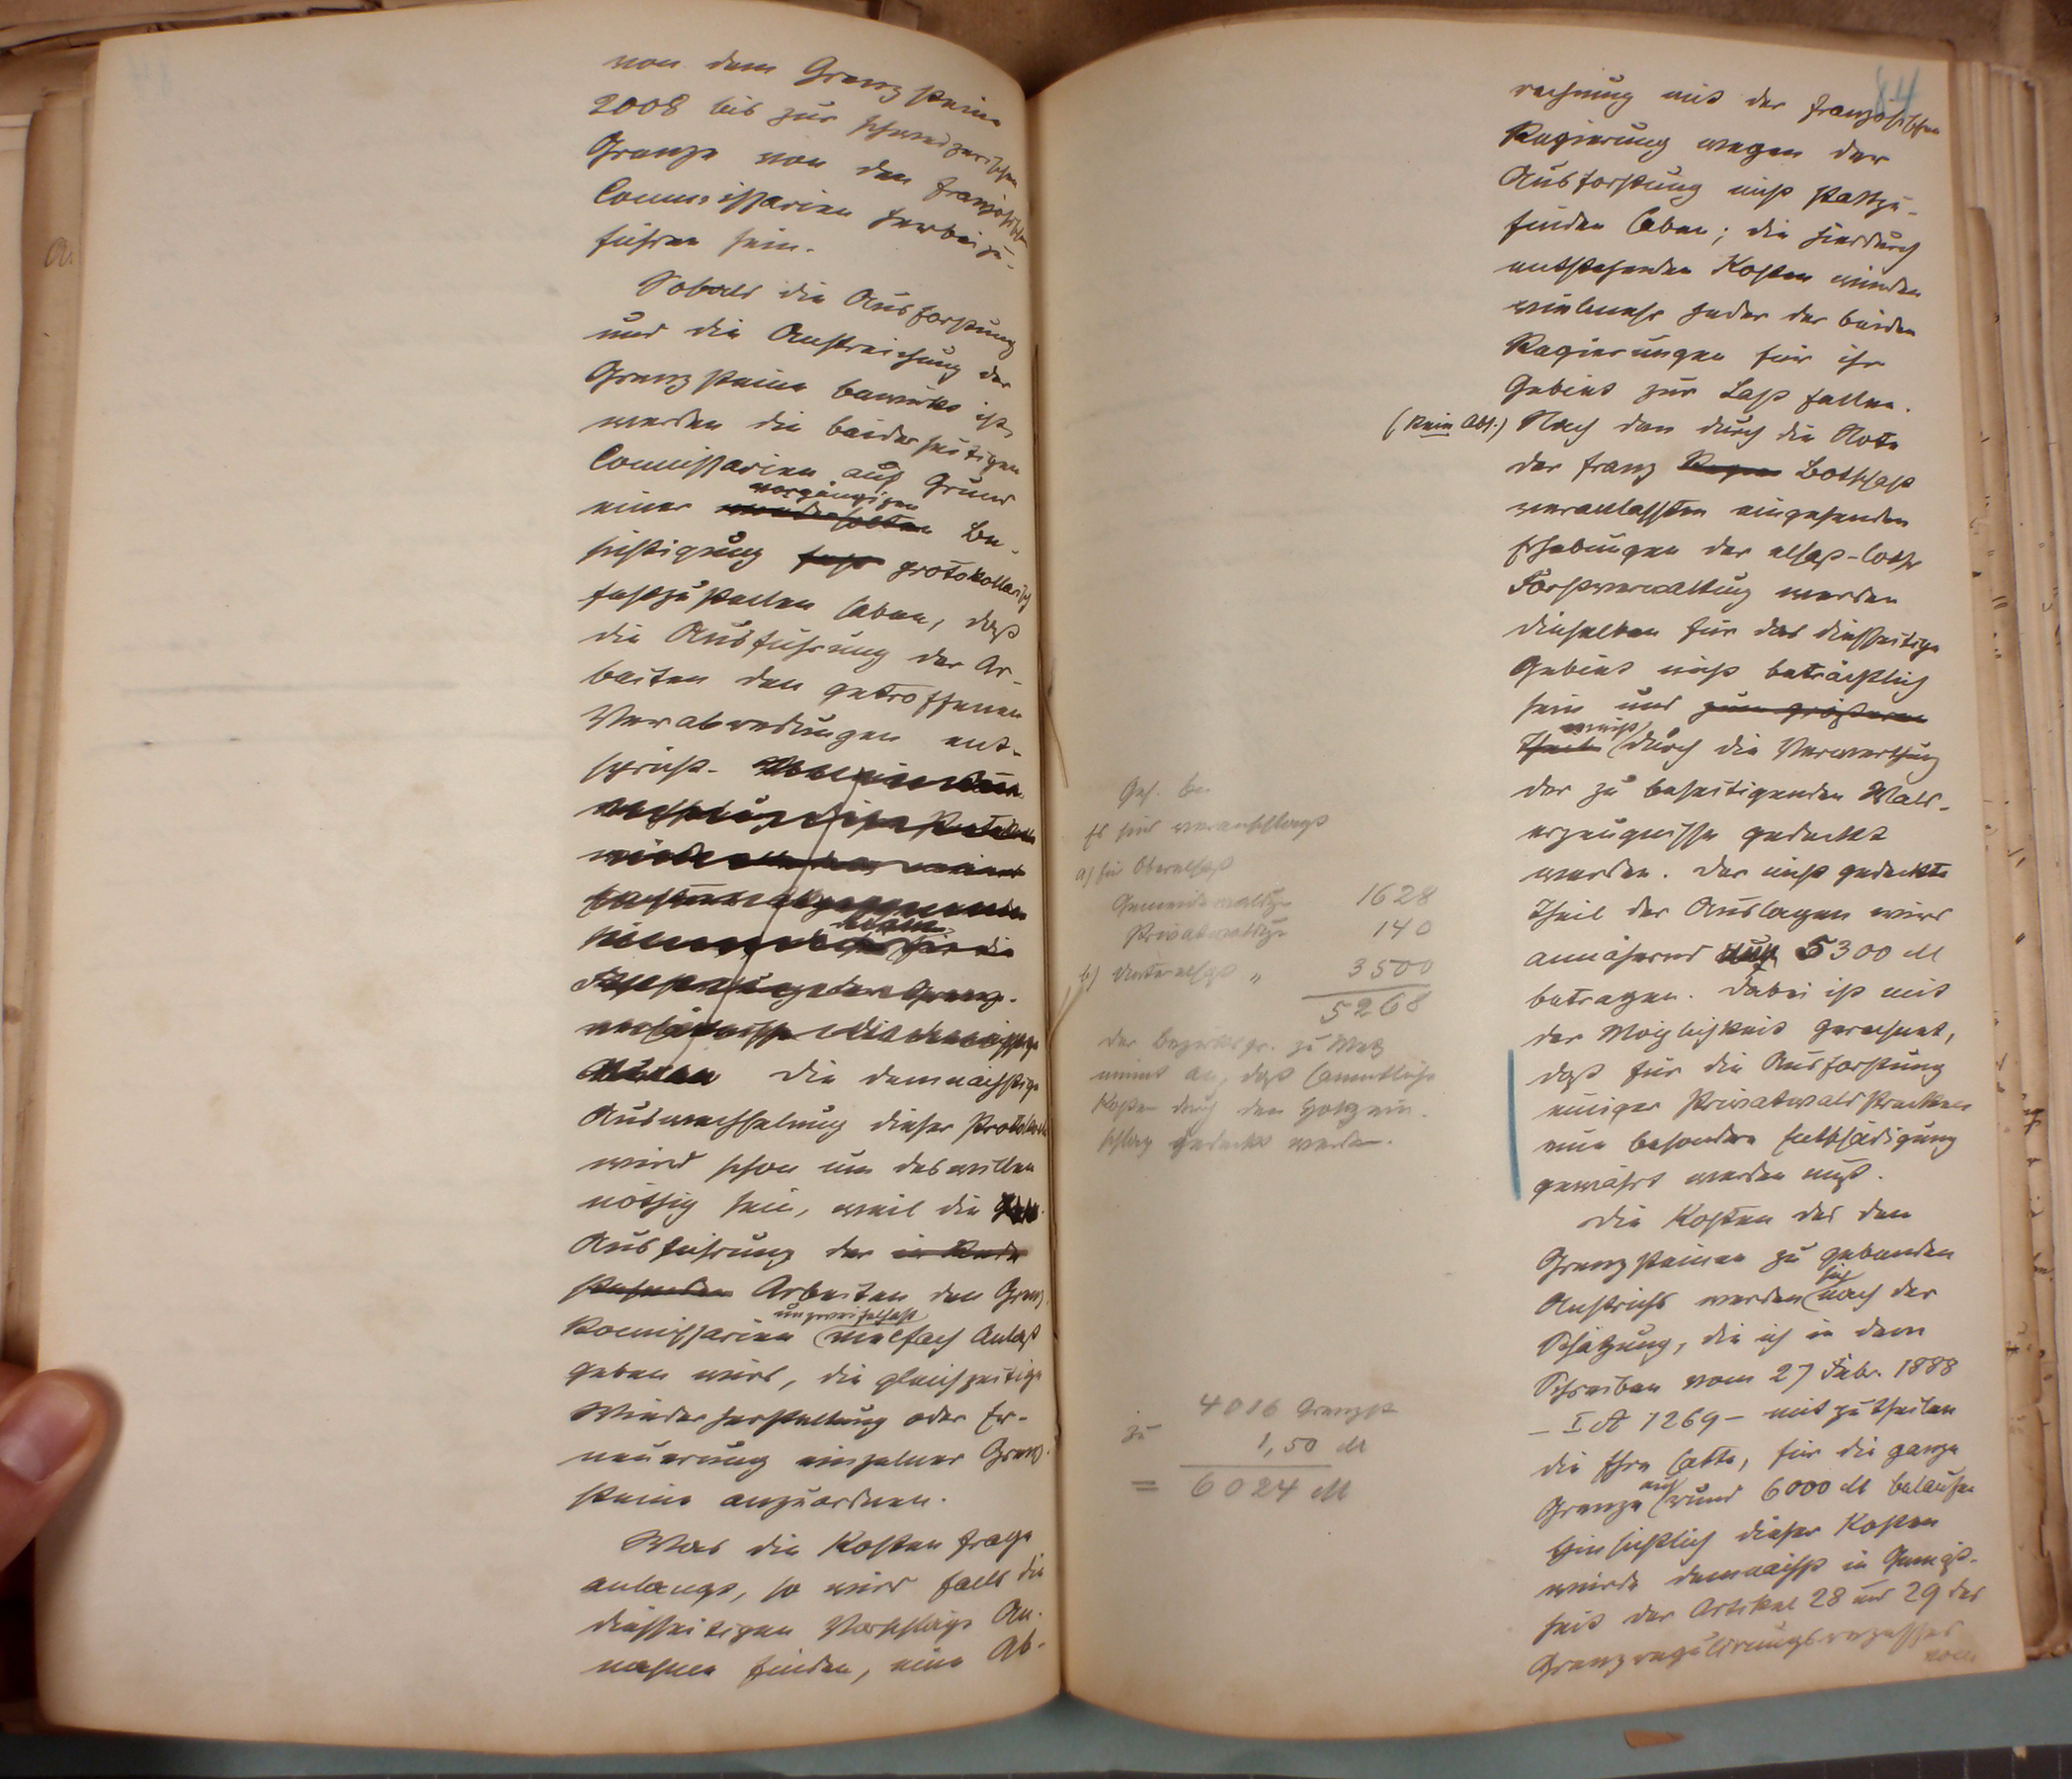 von dem Grenzsteine
2008 bis zur schweizerischen
Grenze von den französischen
Commissarien herbeizu-
führen sein.
Sobald die Ausforstung
und die Anstreichung der
Grenzsteine bewirkt ist,
werden die beiderseitigen
Commissarien auf Grund
vorgängigen
einer wiederholten Be-
sichtigung fest protokollarisch
festzustellen haben, daß
die Ausführung der Ar-
beiten den getroffenen
Verabredungen ent-
spricht.
Die demnächstige
Auswechselung dieser Protokolle
wird schon um deswillen
nöthig sein, weil die
Ausführung der in Rede
stehenden Arbeiten den Grenz-
unzweifelhaft
kommissarien vielfach Anlaß
geben wird, die gleichzeitige
Wiederherstellung oder Er-
neuerung einzelner Grenz-
steine anzuordnen.
Was die Kostenfrage
anlangt, so wird falls die
diesseitigen Vorschläge An-
nahme finden, eine Ab-
84
rechnung mit der französischen
Regierung wegen der
Ausforstung nicht stattzu-
finden haben; die hierdurch
entstehenden Kosten würden
vielmehr jeder der beiden
Regierungen für ihr
Gebiet zur Last fallen.
(kein Abs.) Nach den durch die Note
der franz Botschaft
veranlassten eingehenden
Erhebungen der elsaß-lothr
Forstverwaltung werden
dieselben für das diesseitige
Gebiet nicht beträchtlich
sein und zum größeren
meist
Theile durch die Verwerthung
der zu beseitigenden Wald-
erzeugnisse gedeckt
werden. Der nicht gedeckte
Theil der Auslagen wird
annähernd 5300 M
betragen. Dabei ist mit
der Möglichkeit gerechnet,
daß für die Ausforstung
einiger Privatwaldstrecken
eine besondere Entschädigung
gewährt werden muß.
Die Kosten des den
Grenzsteinen zu gebenden
sich
Anstrichs werden nach der
Schätzung, die ich in dem
Schreiben vom 27 Febr. 1888
– I A 1269 – mitzutheilen
die Ehre hatte, für die ganze
auf
Grenze rund 6000 M belaufen
Hinsichtlich dieser Kosten
würde demnächst in Gemäß-
heit der Artikel 28 und 29 des
Grenzregulirungsrezesses
vom
Es sind veranschlagt
a) für Oberelsaß
Gemeindewaldg 1628
Privatwaldg 140
b) Unterelsaß „ 3500
5268
der Bezirkspr. zu Metz
nimmt an, daß sämmtliche
Kosten durch den Holzein-
schlag gedeckt werden.
4016 Grenzst
zu 1,50 M
= 6024 M